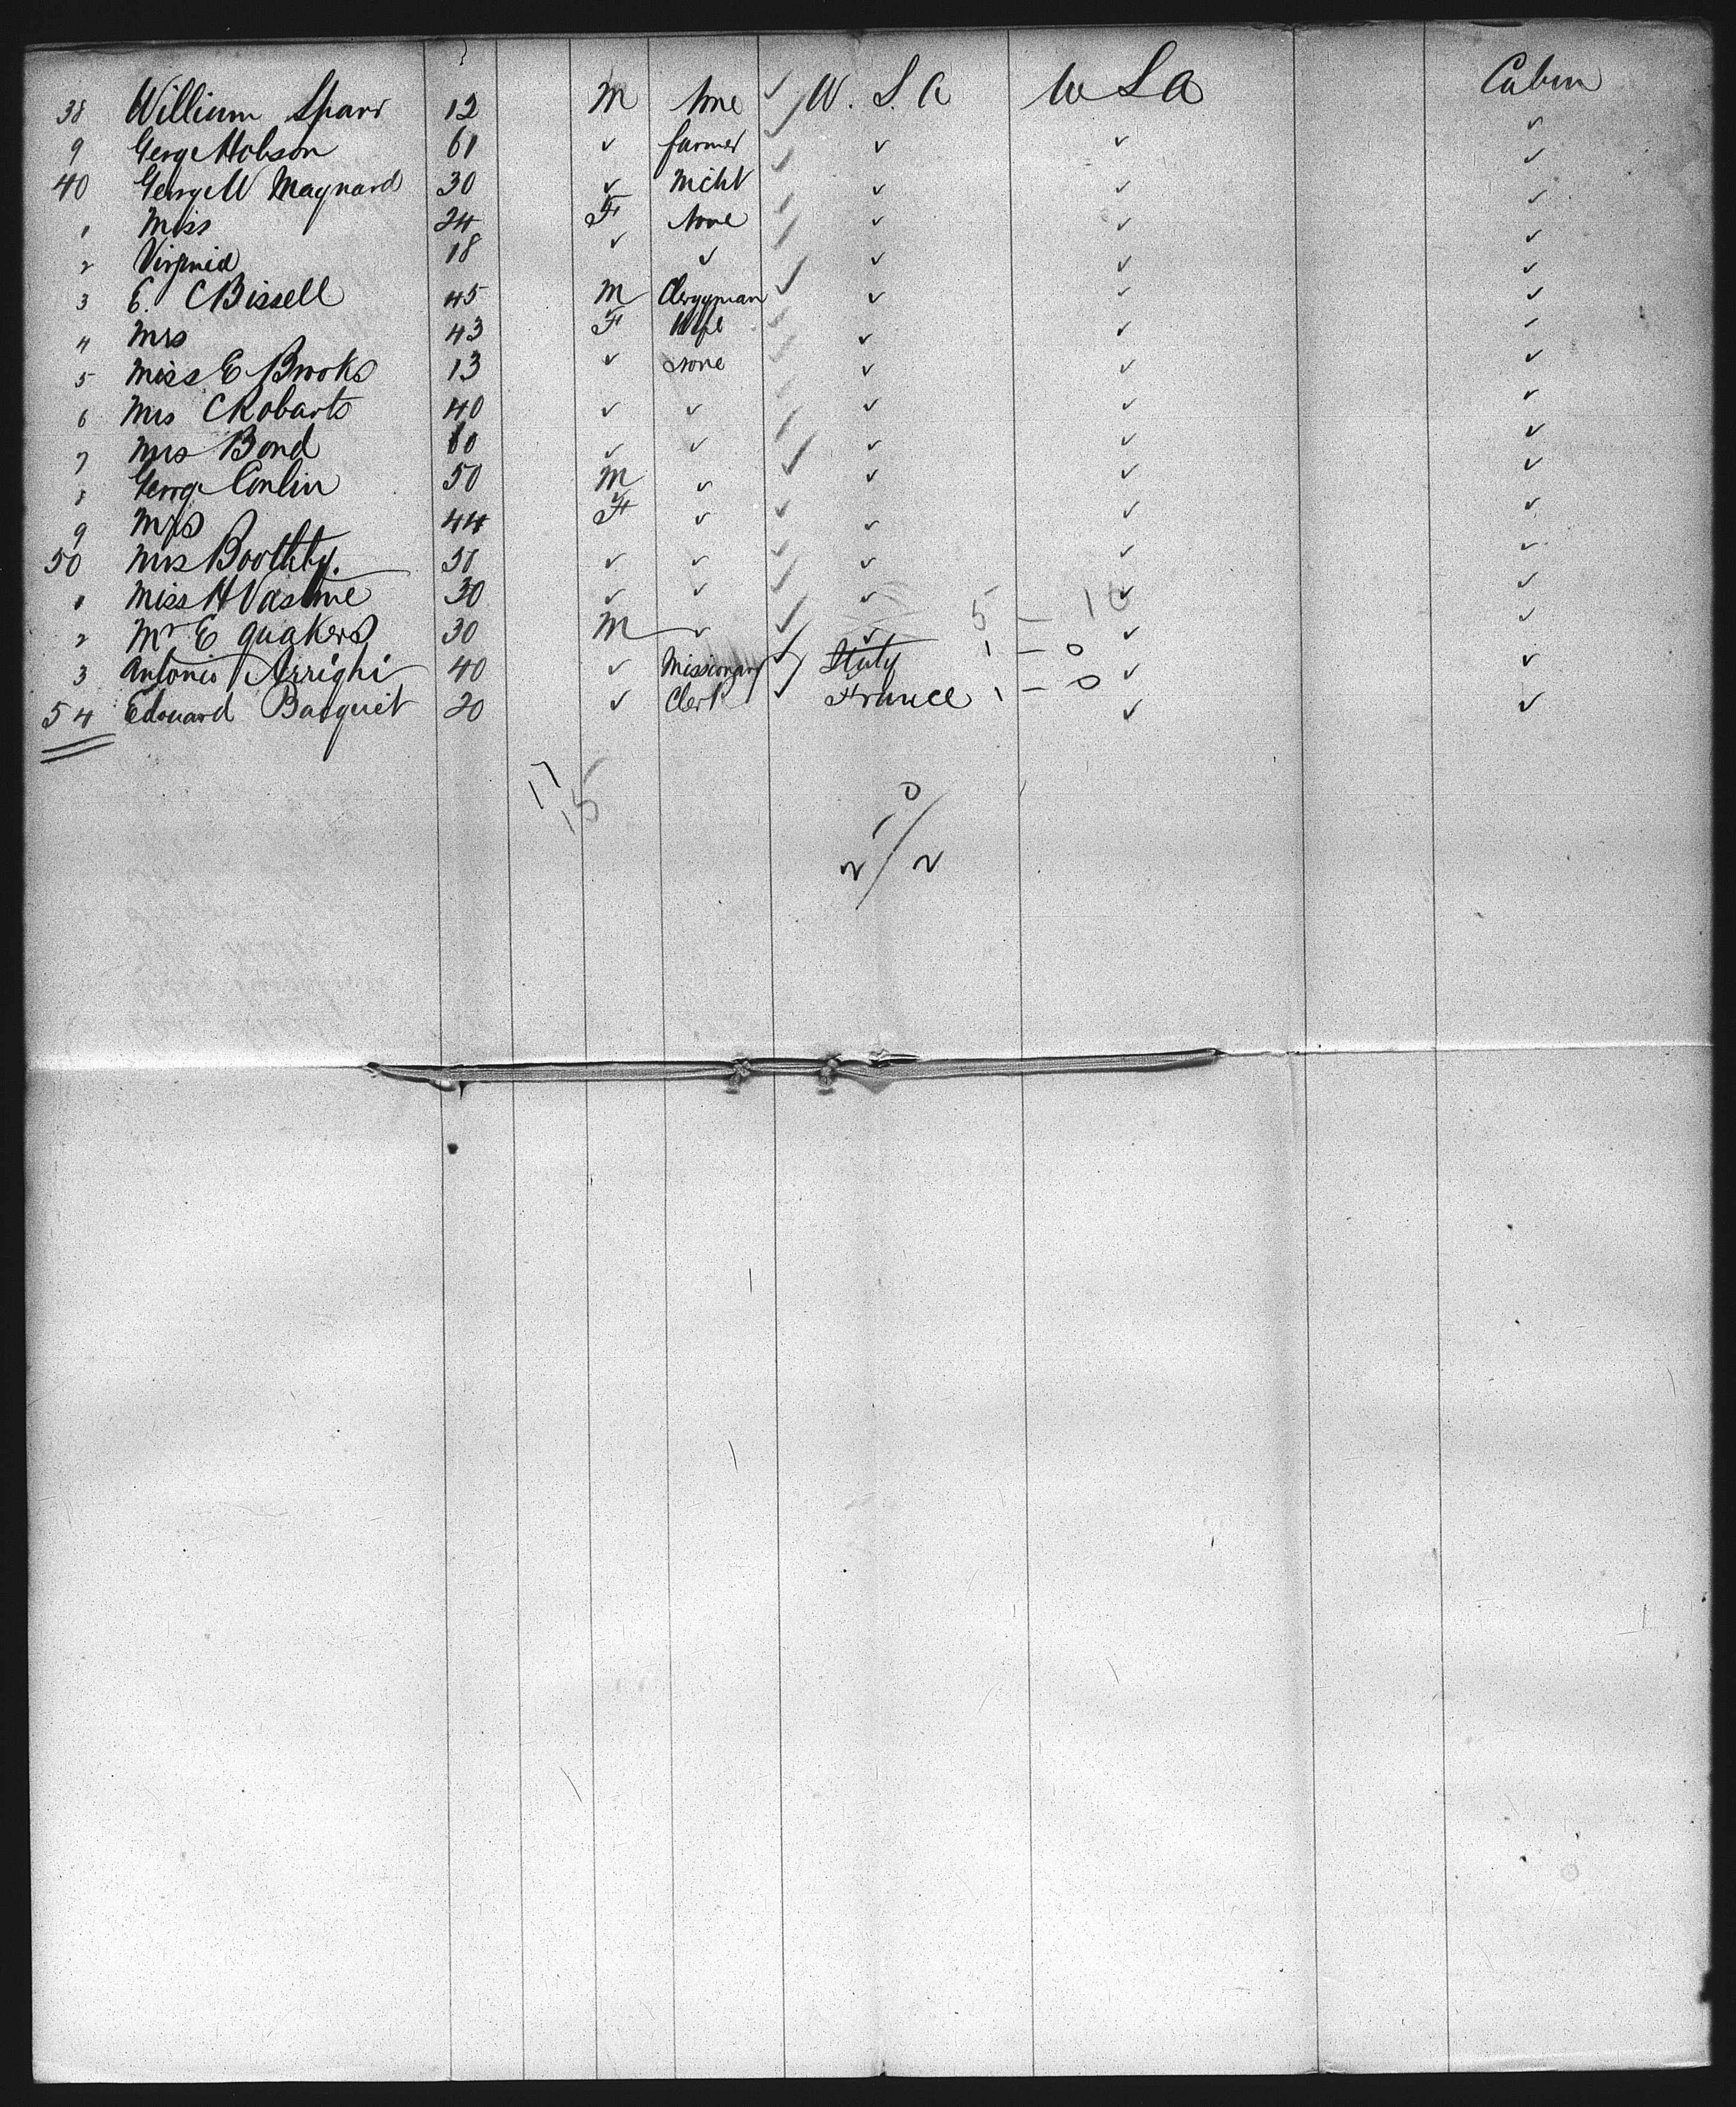 38 William Sparr 12 M None ✓ U. S. A U S A Cabin
9 George Hobson 61 ✓ farmer ✓ ✓ ✓ ✓
40 George W Maynard 30 ✓ Mcht ✓ ✓ ✓ ✓
1 Miss 24 F None ✓ ✓ ✓ ✓
2 Virginia 18 ✓ ✓ ✓ ✓ ✓ ✓
3 E. C Bissell 45 M Clergyman ✓ ✓ ✓ ✓
4 Mrs 43 F Wife ✓ ✓ ✓ ✓
5 Miss E Brooks 13 ✓ None ✓ ✓ ✓ ✓
6 Mrs C Robarts 40 ✓ ✓ ✓ ✓ ✓ ✓
7 Mrs Bond 60 ✓ ✓ ✓ ✓ ✓ ✓
8 George Conlin 50 M ✓ ✓ ✓ ✓ ✓
9 Mrs 44 F ✓ ✓ ✓ ✓ ✓
50 Mrs Boothby. ✓ ✓ ✓ ✓ ✓ ✓
1 Miss H Vastine 30 ✓ ✓ ✓ ✓ ✓ ✓
2 Mr E Quakers 30 M ✓ ✓ ✓ 5 – 10 ✓ ✓
3 Antonio Arrighi 40 ✓ Missionary ✓ Italy 1 – 0 ✓ ✓
54 Edouard Bacquet 20 ✓ Clerk ✓ France 1 – 0 ✓ ✓
17
15
0
2/2